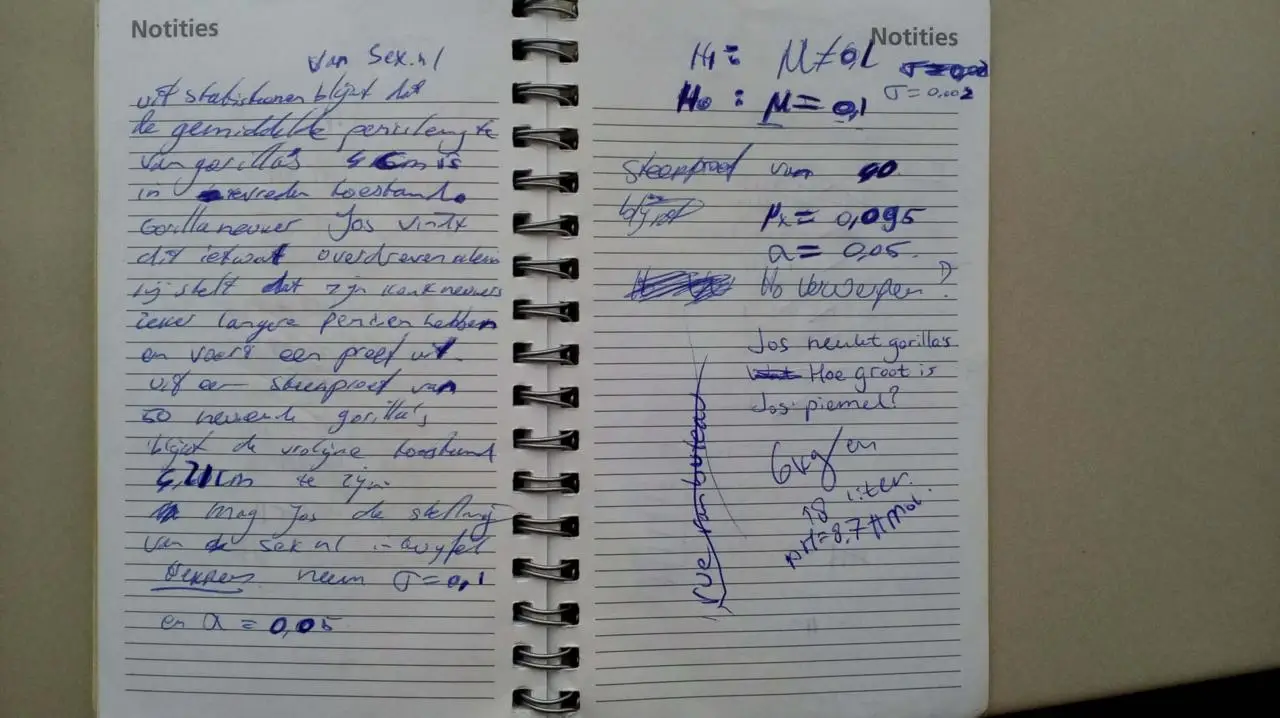 Notities
van Sex.nl
uit statistieken blijkt dat
de gemiddelde penislengte
van gorilla's 4 cm is
in toestand.
Gorillaneuker Jos vindt
dit ietwat overdreven
hij stelt dat zijn
zeker langere penissen hebben
en voert een proef uit.
uit een steekproef van
50 gorilla's
blijkt de vrolijke toestand
4,21cm te zijn
mag Jos de stelling
van de sex.nl in twijfel
neem σ=0,1
en α = 0,05
Notities
H₁: μ≠0,1
σ=0,002
H₀: μ=0,1
steekproef van 90
blijkt
μx= 0,095
a= 0,05.
H₀ verwerpen?
Jos neukt gorilla's
Hoe groot is
Jos piemel?
6kg/en
18 liter.
pH=8,7